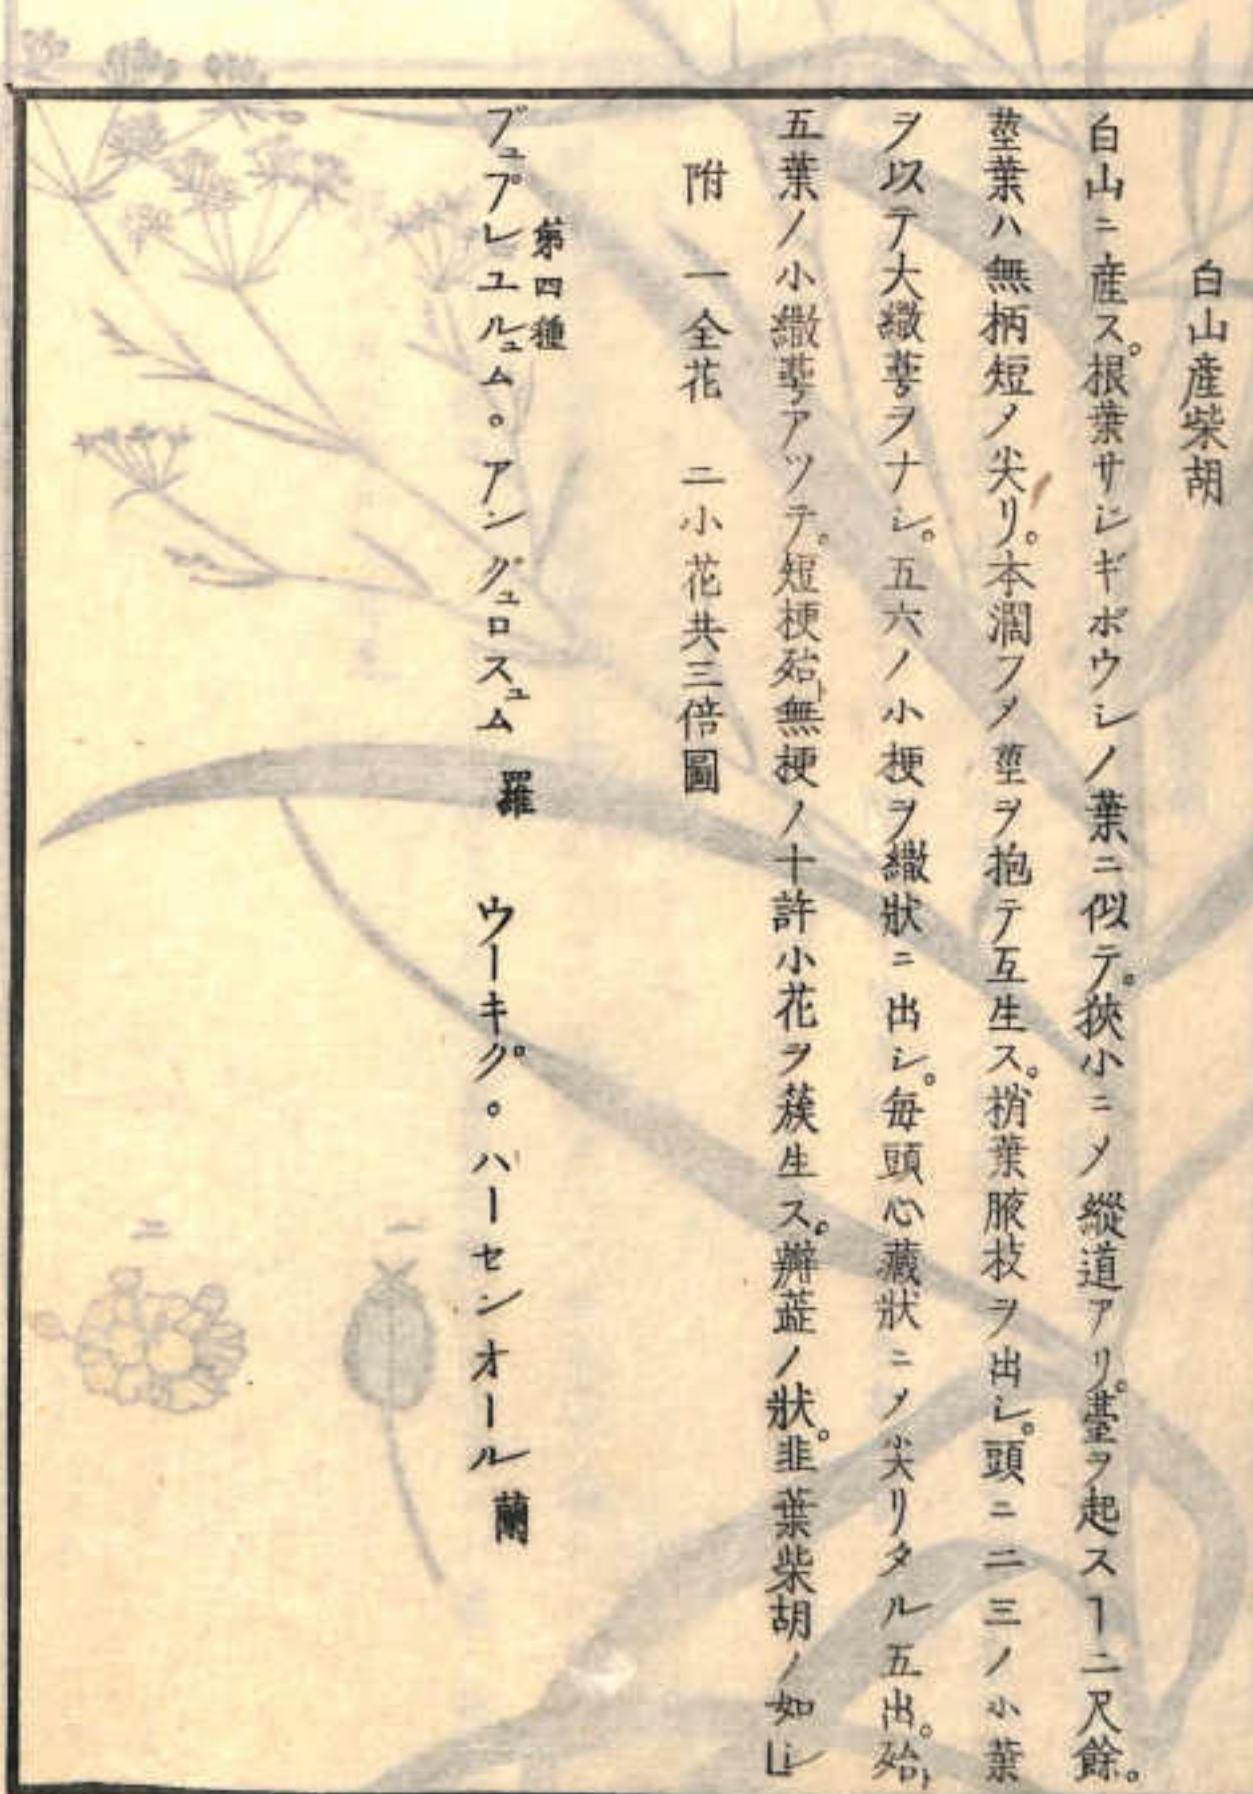 白山産柴胡
白山ニ産ス。根葉サジギボウシノ葉ニ似テ。狹小ニ〆縱道アリ。薹ヲ起スヿ二尺餘。
莖葉ハ無柄短〆尖リ。本濶フ〆莖ヲ抱テ互生ス。梢葉腋枝ヲ出シ。頭ニ二三ノ小葉
ヲ以テ大繖蕚ヲナシ。五六ノ小梗ヲ繖狀ニ出シ。毎頭心藏狀ニ〆尖リタル五出。殆ト
五葉ノ小繖蕚アツテ。短梗殆ト無梗ノ十許小花ヲ蔟生ス。瓣蕋ノ狀。韭葉柴胡ノ如シ
附 一全花 二小花共三倍圖
第四種
ブュプレユルュム。アングュロスュム 羅 ウーキグ。ハーセンオール 蘭
一
二